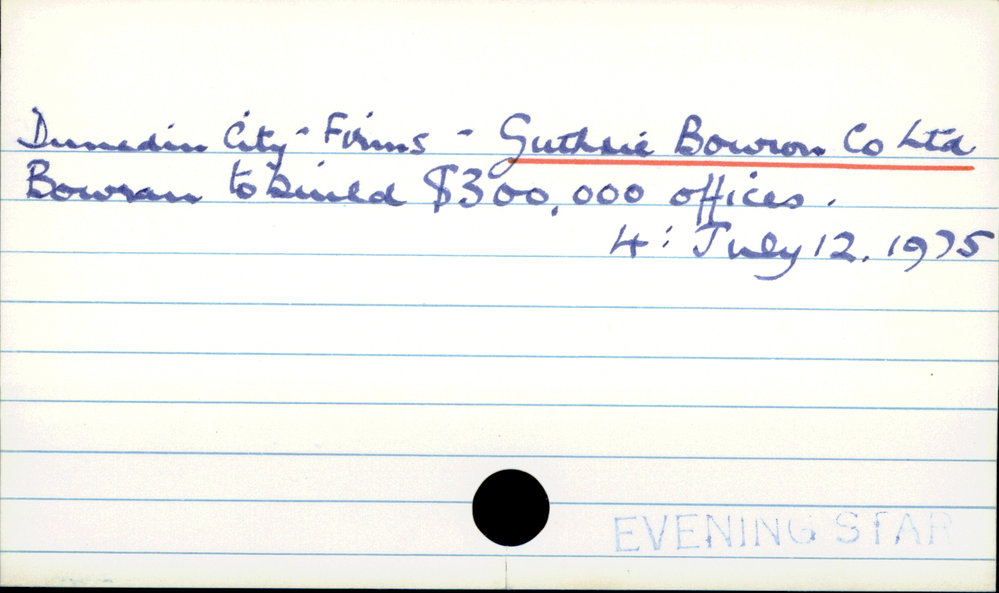 Dunedin City - Firms - Guthrie Bowron Co Ltd
Bowran to build $300,000 offices.
4: July 12. 1975
EVENING STAR